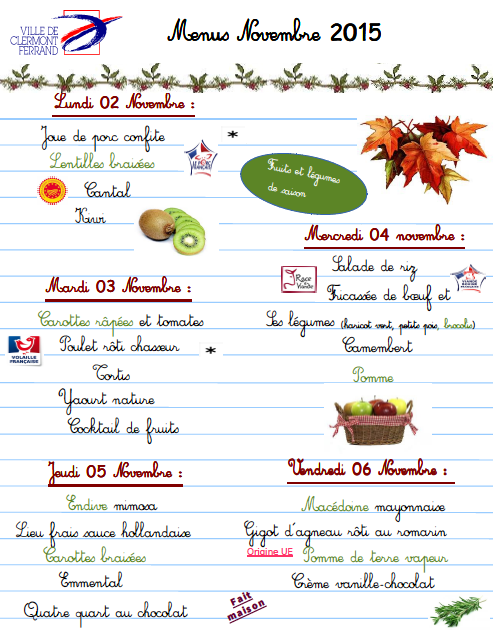 VILLE DE
CLERMONT
FERRAND
Menus Novembre 2015
Lundi 02 Novembre :
Joue de porc confite *
Lentilles braisées
LE PORC FRANÇAIS
Cantal
Kiwi
Fruits et légumes
de saison
Mardi 03 Novembre :
Carottes râpées et tomates
VOLAILLE FRANÇAISE
Poulet rôti chasseur *
Tortis
Yaourt nature
Cocktail de fruits
Mercredi 04 novembre :
Salade de riz
Race à Viande
Fricassée de bœuf et
Ses légumes (haricot vert, petits pois, brocolis)
Camembert
Pomme
Jeudi 05 Novembre :
Endive mimosa
Lieu frais sauce hollandaise
Carottes braisées
Emmental
Quatre quart au chocolat
Fait
maison
Vendredi 06 Novembre :
Macédoine mayonnaise
Gigot d'agneau rôti au romarin
Origine UE
Pomme de terre vapeur
Crème vanille-chocolat